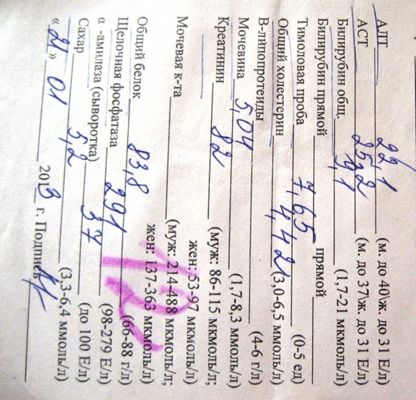 АЛТ 22,1 (м. до 40\ж. до 31 Е/л)
АСТ 25,2 (м. до 37\ж. до 31 Е/л)
Билирубин общ. 9,1 (1,7-21 мкмоль/л)
Билирубин прямой прямой
Тимоловая проба 7,65 (0-5 ед)
Общий холестерин 4,42 (3,0-6,5 ммоль/л)
В-липопротеиды (4-6 г/л)
Мочевина 5,04 (1,7-8,3 ммоль/л)
Креатинин 82 (муж: 86-115 мкмоль/л;
жен: 53-97 мкмоль/л)
Мочевая к-та (муж: 214-488 мкмоль/л;
жен: 137-363 мкмоль/л)
Общий белок 83,8 (66-88 г/л)
Щелочная фосфатаза 291 (98-279 Е/л)
α -амилаза (сыворотка) 37 (до 100 Е/л)
Сахар 5,2 (3,3-6,4 ммоль/л)
« 21 » 01 2013 г. Подпись